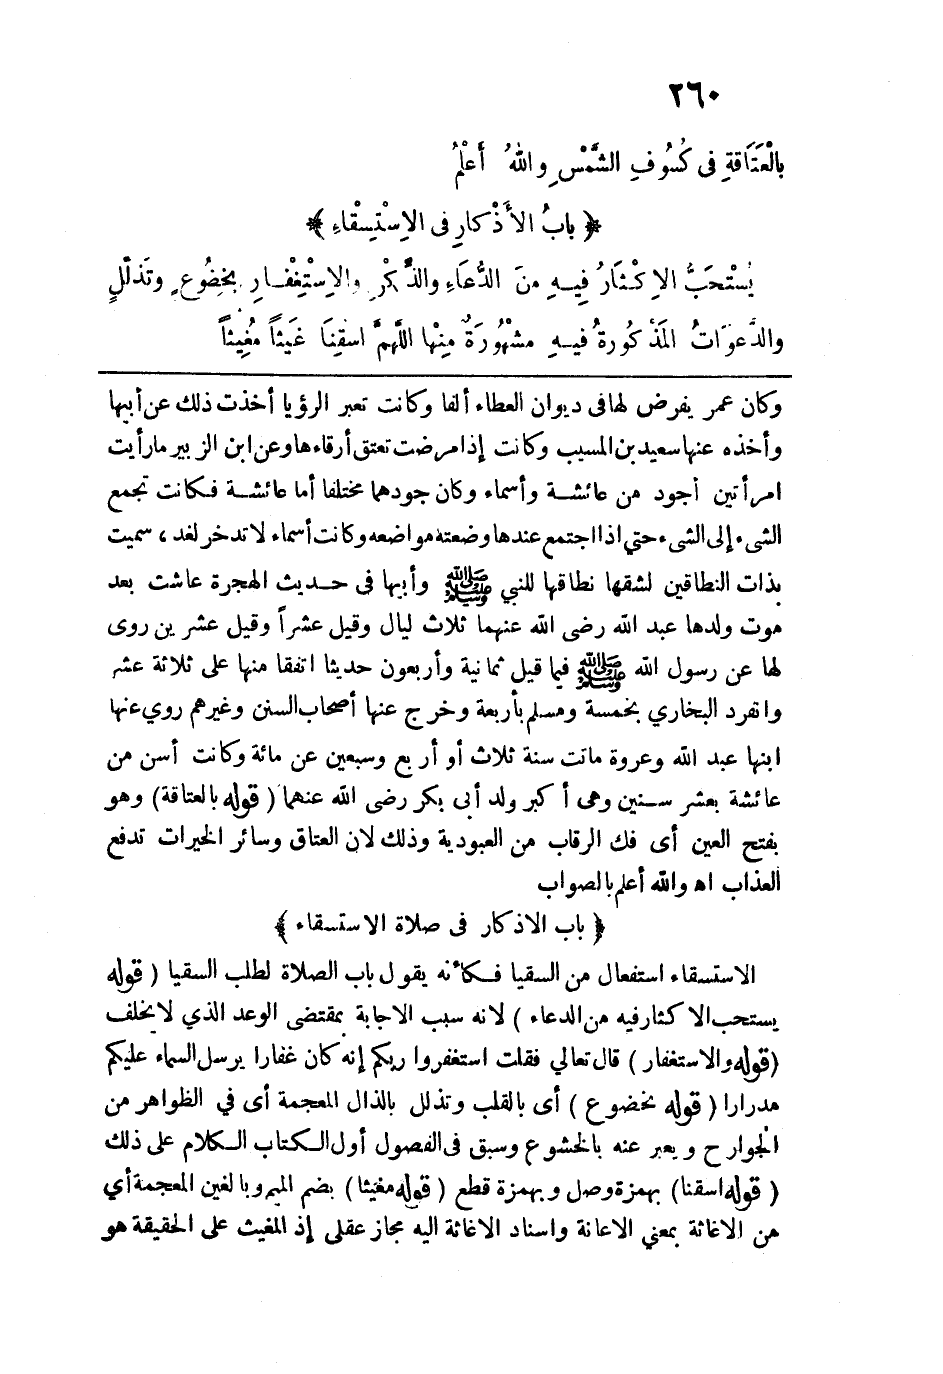 ٢٦٠
بِالْعَتَاقَةِ فى كُسُوفِ الشَّمْسِ واللهُ أَعْلَمُ
﴿ بابُ الأَذْكارِ فى الاِسْتِسْقاءِ ﴾
يُسْتَحَبُّ الإِكْثارُ فِيهِ مِنَ الدُّعَاءِ والذِّكْرِ والاِسْتِغْفارِ بِخُضُوعٍ وتَذَلُّلٍ
والدَّعوَاتُ المَذْكورةُ فيهِ مشْهُورَةٌ مِنْها اللَّهُمَّ اسْقِنَا غَيْثاً مُغِيثاً
وكان عمر يفرض لها فى ديوان العطاء ألفا وكانت تعبر الرؤيا أخذت ذلك عن أبيها
وأخذه عنها سعيد بن المسيب وكانت إذا مرضت تعتق أرقاءها وعن ابن الزبير ما رأيت
امرأتين أجود من عائشة وأسماء وكان جودهما مختلفا أما عائشة فكانت تجمع
الشىء إلى الشىء حتي اذا اجتمع عندها وضعته مواضعه وكانت أسماء لا تدخر لغد ، سميت
بذات النطاقين لشقها نطاقها للنبي ﷺ وأبيها فى حديث الهجرة عاشت بعد
موت ولدها عبد الله رضى الله عنهما ثلاث ليال وقيل عشراً وقيل عشرين روى
لها عن رسول الله ﷺ فيما قيل ثمانية وأربعون حديثا اتفقا منها على ثلاثة عشر
وانفرد البخاري بخمسة ومسلم بأربعة وخرج عنها أصحاب السنن وغيرهم روي عنها
ابنها عبد الله وعروة ماتت سنة ثلاث أو أربع وسبعين عن مائة وكانت أسن من
عائشة بعشر سنين وهى أكبر ولد أبى بكر رضى الله عنهما ( قوله بالعتاقة) وهو
بفتح العين أى فك الرقاب من العبودية وذلك لان العتاق وسائر الخيرات تدفع
العذاب اه والله أعلم بالصواب
﴿ باب الاذكار فى صلاة الاستسقاء ﴾
الاستسقاء استفعال من السقيا فكأنه يقول باب الصلاة لطلب السقيا ( قوله
يستحب الاكثار فيه من الدعاء ) لانه سبب الاجابة بمقتضى الوعد الذي لا يخلف
(قوله والاستغفار ) قال تعالي فقلت استغفروا ربكم إنه كان غفارا يرسل السماء عليكم
مدرارا ( قوله بخضوع ) أى بالقلب وتذلل بالذال المعجمة أى في الظواهر من
الجوارح ويعبر عنه بالخشوع وسبق فى الفصول أول الكتاب الكلام على ذلك
( قوله اسقنا) بهمزة وصل وبهمزة قطع ( قوله مغيثا ) بضم الميم وبالغين المعجمة أي
من الاغاثة بمعني الاعانة واسناد الاغاثة اليه مجاز عقلى إذ المغيث على الحقيقة هو